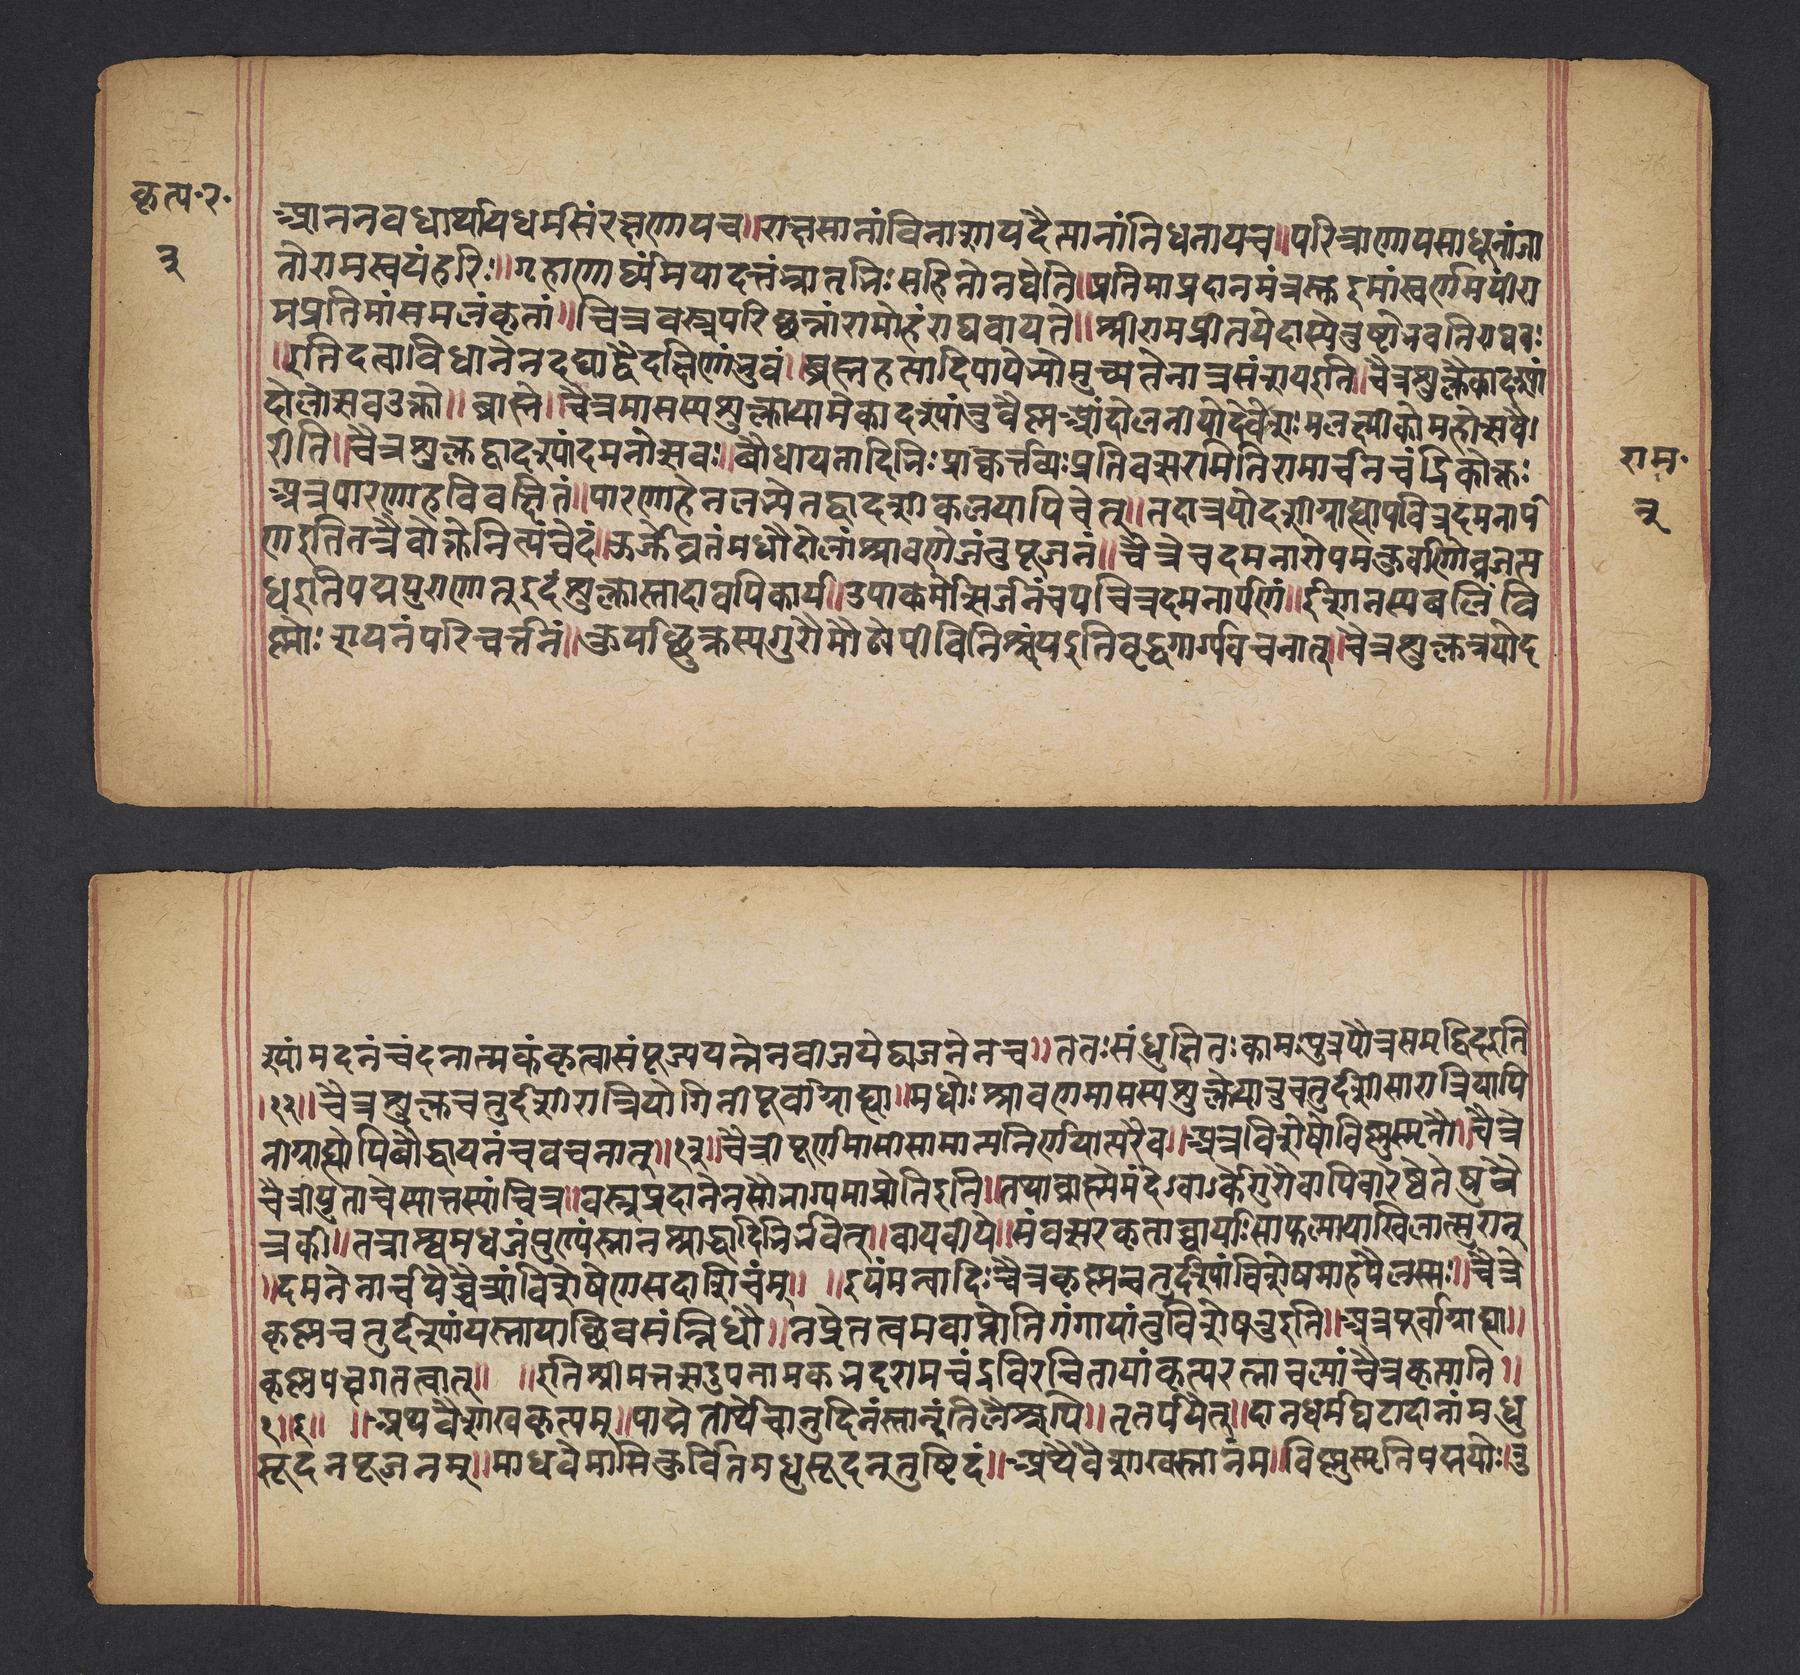 कृत्य॰र॰
३
आननवधार्थायधर्मसंरक्षणायच॥राक्षसानांविनाशायदैत्यानांनिधनायच॥परित्राणायसाधूनांजा
तोरामस्वयंहरिः॥गृहाणार्घ्यंमयादत्तंभ्रातृभिःसहितोनघेति॥प्रतिमाप्रदानमंत्रस्तुइमांस्वर्णमयींरा
मप्रतिमांसमलंकृतां॥चित्रवस्त्रपरिछन्नांरामोहंराघवायते॥श्रीरामप्रीतयेदास्येतुष्टोभवतिराघवः
॥इतिदत्वाविधानेनदद्याद्वैदक्षिणांभुवं॥ब्रह्महत्यादिपापेभ्योमुच्यतेनात्रसंशयइति॥चैत्रशुक्लैकादश्यां
दोलोत्सवउक्तो॥ब्राह्मे॥चैत्रमासस्यशुक्लायामेकादश्यांतुवैष्णवैःआंदोलनीयोदेवेशःसलक्ष्मीकोमहोत्सवै
रीति॥चैत्रशुक्लद्वादश्यांदमनोत्सवः॥बौधायनादिभिःप्राक्कर्त्तव्यःप्रतिवत्सरमितिरामार्चनचंद्रिकोक्तः
अत्रपारणाहविवक्षितं॥पारणाहेनलभ्येतद्वादशीकलयापिचेत्॥तदात्रयोदशीग्राह्यापवित्रदमनार्प
णइतितत्रैवोक्तेनित्यंचेदं॥ऊर्जेव्रतंमधौदोलांश्रावणेतंतुपूजनं॥चैत्रेचदमनारोपमकुर्वाणोव्रजत्य
धइतिपद्मपुराणात्इदंशुक्लास्तादावपिकार्यं॥उपाकर्मोत्सर्जनंचपवित्रदमनार्पणं॥ईशानस्यबलिंवि
ष्णोःशयनंपरिवर्त्तनं॥कुर्याछुक्रस्यगुरोर्मौढ्येपीविनिश्चयइतिवृद्धगार्ग्यवचनात्॥चैत्रशुक्लत्रयोद
राम॰
३
श्यांमदनंचंदनात्मकंकृत्वासंपूज्ययत्नेनवीजयेद्व्यजनेनच॥ततःसंधुक्षितःकामःपुत्रपौत्रसमृद्धिदइति
।१३॥चैत्रशुक्लचतुर्दशीरात्रियोगिनीपूर्वाग्राह्या॥मधोःश्रावणमासस्यशुक्लेयातुचतुर्दशीसारात्रिव्यापि
नीग्राह्योपिबौद्धायनंचवचनात्॥१४॥चैत्रीपूर्णिमासीसामान्यनिर्णयात्परैव॥अत्रविशेषोविष्णुस्मृतौ॥चैत्रे
चैत्रीयुताचेस्यात्तस्यांचित्र॥वस्त्रप्रदानेनसौभाग्यमाप्नोतिइति॥तथाब्राह्मेमंदेवार्केगुरौवापिवारेष्वेतेषुचै
त्रकी॥तत्राश्वमेधजंपुण्यंस्नानश्राद्धादिभिर्भवेत्॥वायवीये॥संवत्सरकृतार्चायाःसाफल्यायाखिलात्सुरान्
॥दमनेनार्चयेच्चैत्र्यांविशेषेणसदाशिवंम्॥॥इयंमन्वादिःचैत्रकृष्णचतुर्दश्यांविशेषमाहपैलस्त्यः॥चैत्रे
कृष्णचतुर्दश्यांयस्नायाछिवसंन्निधौ॥नप्रेतत्वमवाप्नोतिगंगायांतुविशेषतुइति॥अत्रपूर्वाग्राह्या॥
कृष्णपक्षगतत्वात्॥॥इतिश्रीमत्तत्सउपनामकभट्टरामचंद्रविरचितायांकृत्यरत्नावल्यांचैत्रकृत्यानि॥
१॥छ॥॥अथवैशाखकृत्यम्॥पाद्मेतीर्थेचानुदिनंस्नानंतिलैश्चपि॥तृतर्पयेत्॥दानधर्मघटादानांमधु
सूदनपूजनम्॥माधवेमासिकुर्वीतमधुसूदनतुष्टिदं॥अथवैशाखस्नानंम॥विष्णुस्मृतिपद्मयोः॥तु